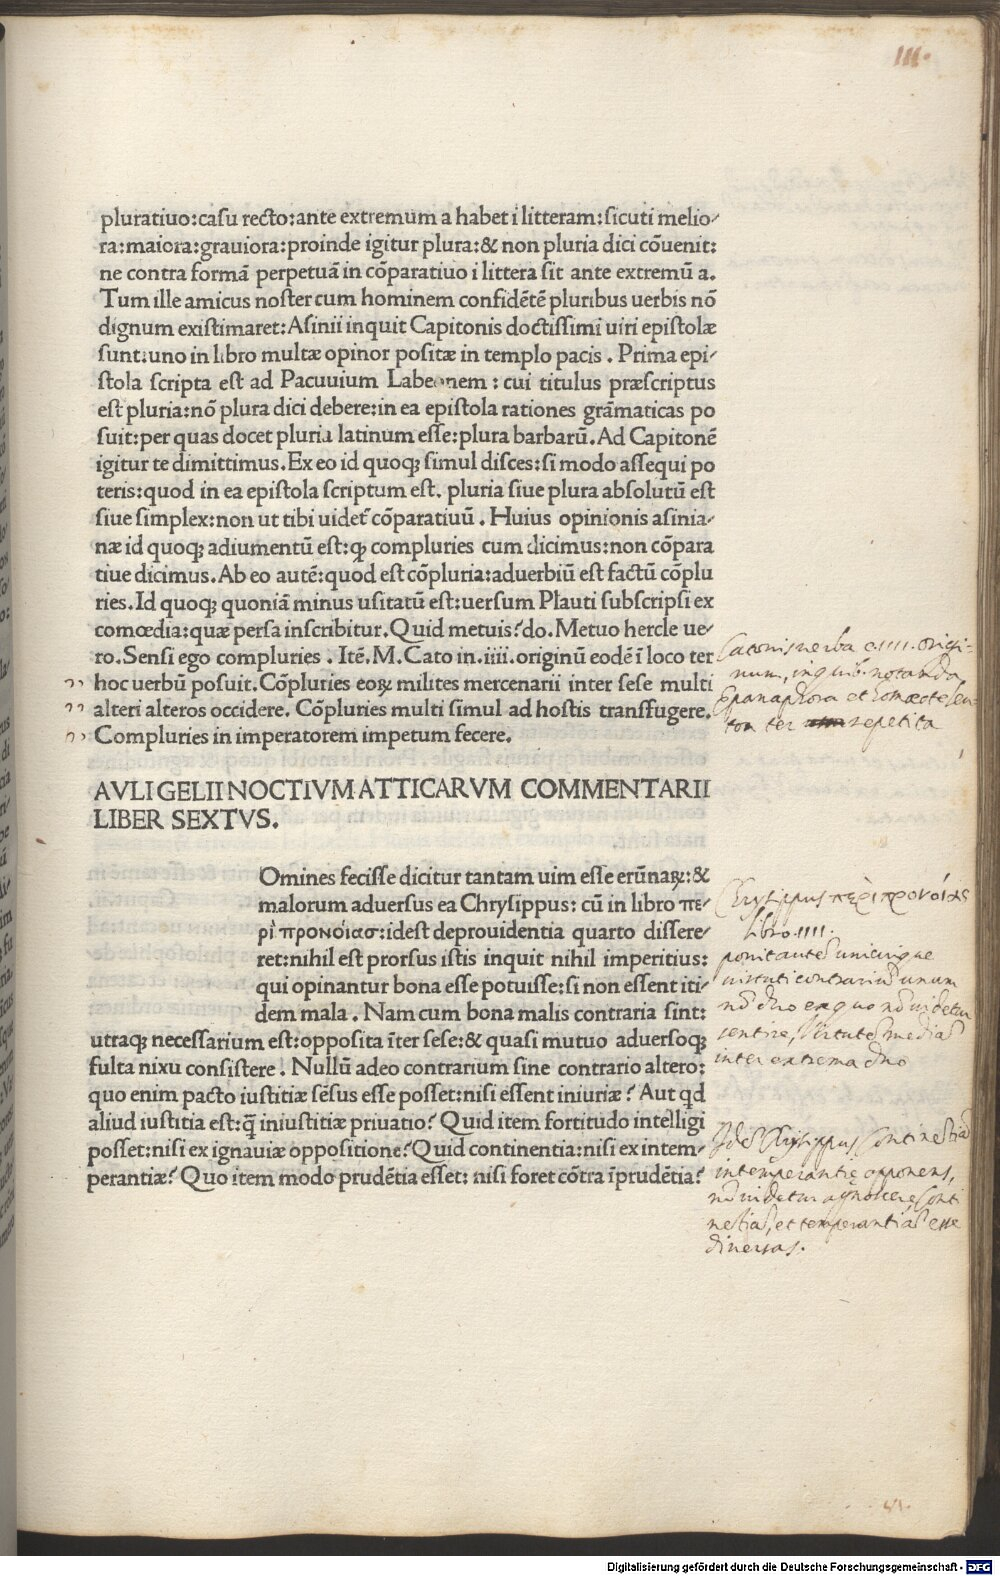 III.
pluratiuo:casu recto:ante extremum a habet i litteram:sicuti melio⸗
ra:maiora:grauiora:proinde igitur plura:& non pluria dici cõuenit:
ne contra formã perpetuã in cõparatiuo i littera sit ante extremũ a.
Tum ille amicus noster cum hominem confidẽtẽ pluribus uerbis nõ
dignum existimaret:Asinii inquit Capitonis doctissimi uiri epistolæ
sunt:uno in libro multæ opinor positæ in templo pacis . Prima epi⸗
stola scripta est ad Pacuuium Labeonem : cui titulus præscriptus
est pluria:nõ plura dici debere:in ea epistola rationes grãmaticas po
suit:per quas docet pluria latinum esse:plura barbarũ.Ad Capitonẽ
igitur te dimittimus.Ex eo id quoqꝫ simul disces:si modo assequi po
teris:quod in ea epistola scriptum est. pluria siue plura absolutũ est
siue simplex:non ut tibi uidet᷑ cõparatiuũ . Huius opinionis asinia⸗
næ id quoqꝫ adiumentũ est:qꝫ compluries cum dicimus:non cõpara
tiue dicimus.Ab eo autẽ:quod est cõpluria:aduerbiũ est factũ cõplu
ries.Id quoqꝫ quoniã minus usitatũ est:uersum Plauti subscripsi ex
comœdia:quæ persa inscribitur.Quid metuis?do.Metuo hercle ue⸗
ro.Sensi ego compluries . Itẽ.M.Cato in.iiii.originũ eodẽ ĩ loco ter
hoc uerbũ posuit.Cõpluries eoꝝ milites mercenarii inter sese multi
alteri alteros occidere. Cõpluries multi simul ad hostis transfugere.
Compluries in imperatorem impetum fecere.
Catonis uerba e IIII. origi⸗
num, in quib. notanda
Epanaphora et homœoteleu⸗
ton ter repetita
AVLI GELII NOCTIVM ATTICARVM COMMENTARII
LIBER SEXTVS.
Omines fecisse dicitur tantam uim esse erũnaꝝ:&
malorum aduersus ea Chrysippus: cũ in libro πε⸗
ρὶ προνοιασ:idest de prouidentia quarto dissere⸗
ret:nihil est prorsus istis inquit nihil imperitius:
qui opinantur bona esse potuisse:si non essent iti⸗
dem mala . Nam cum bona malis contraria sint:
utraqꝫ necessarium est:opposita ĩter sese:& quasi mutuo aduersoqꝫ
fulta nixu consistere . Nullũ adeo contrarium sine contrario altero:
quo enim pacto iustitiæ sẽsus esse posset:nisi essent iniuriæ? Aut qd
aliud iustitia est:q̃ iniustitiæ priuatio? Quid item fortitudo intelligi
posset:nisi ex ignauiæ oppositione?Quid continentia:nisi ex intem⸗
perantiæ? Quo item modo prudẽtia esset: nisi foret cõtra ĩprudẽtia?
Chrysippus περὶ προνοίας
libro.IIII.
ponit autẽ unicuique
uirtuti contrariũ unum
nõ duo ex quo nõ uidetur
sentire, Virtutẽ mediã
inter extrema duo
Idẽ Chrysippus Continẽtiã
intemperantię opponens,
nõ uidetur agnoscere Conti
nẽtiã, et temperantiã esse
diuersas.
VI.
Digitalisierung gefördert durch die Deutsche Forschungsgemeinschaft - DFG